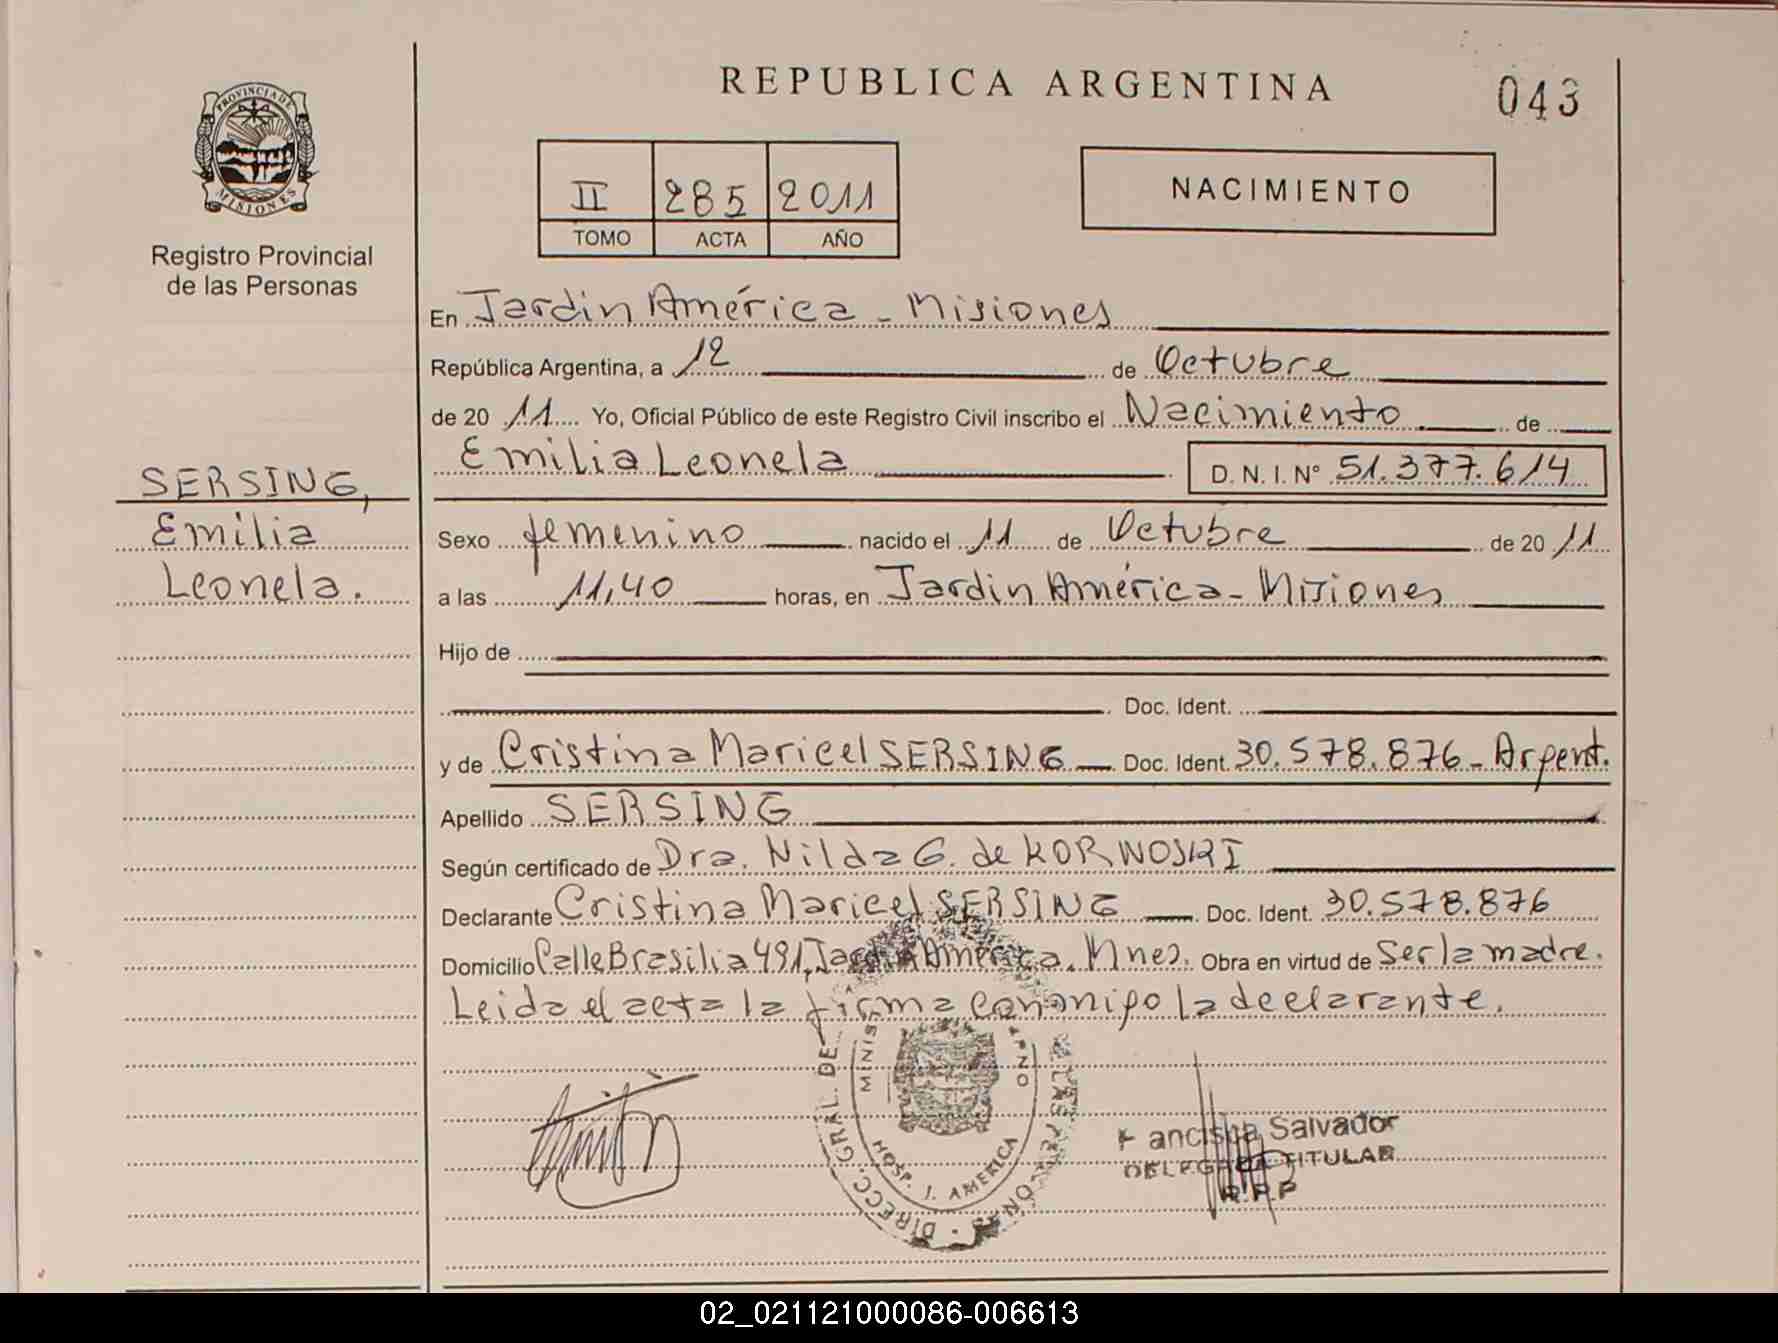 REPUBLICA ARGENTINA
043
PROVINCIA DE
MISIONES
Registro Provincial
de las Personas
II 285 2011
TOMO ACTA AÑO
NACIMIENTO
En Jardin América - Misiones
República Argentina, a 12 de Octubre
de 20 11 Yo, Oficial Público de este Registro Civil inscribo el Nacimiento de
Emilia Leonela D. N. I. N° 51.377.614
SERSING,
Emilia
Leonela.
Sexo femenino nacido el 11 de Octubre de 20 11
a las 11,40 horas, en Jardin América - Misiones
Hijo de
Doc. Ident.
y de Cristina Maricel SERSING Doc. Ident. 30.578.876 - Argent.
Apellido SERSING
Según certificado de Dra. Nilda G. de KORNOSKI
Declarante Cristina Maricel SERSING Doc. Ident. 30.578.876
Domicilio Calle Brasilia 491, Jardin América. Mnes. Obra en virtud de Ser la madre.
Leida el acta la firma conmigo la declarante.
DIRECC. GRAL. DE LAS PERSONAS
HOSP. J. AMERICA
Salvador
DELEGADA TITULAR
R.P.P
02_021121000086-006613